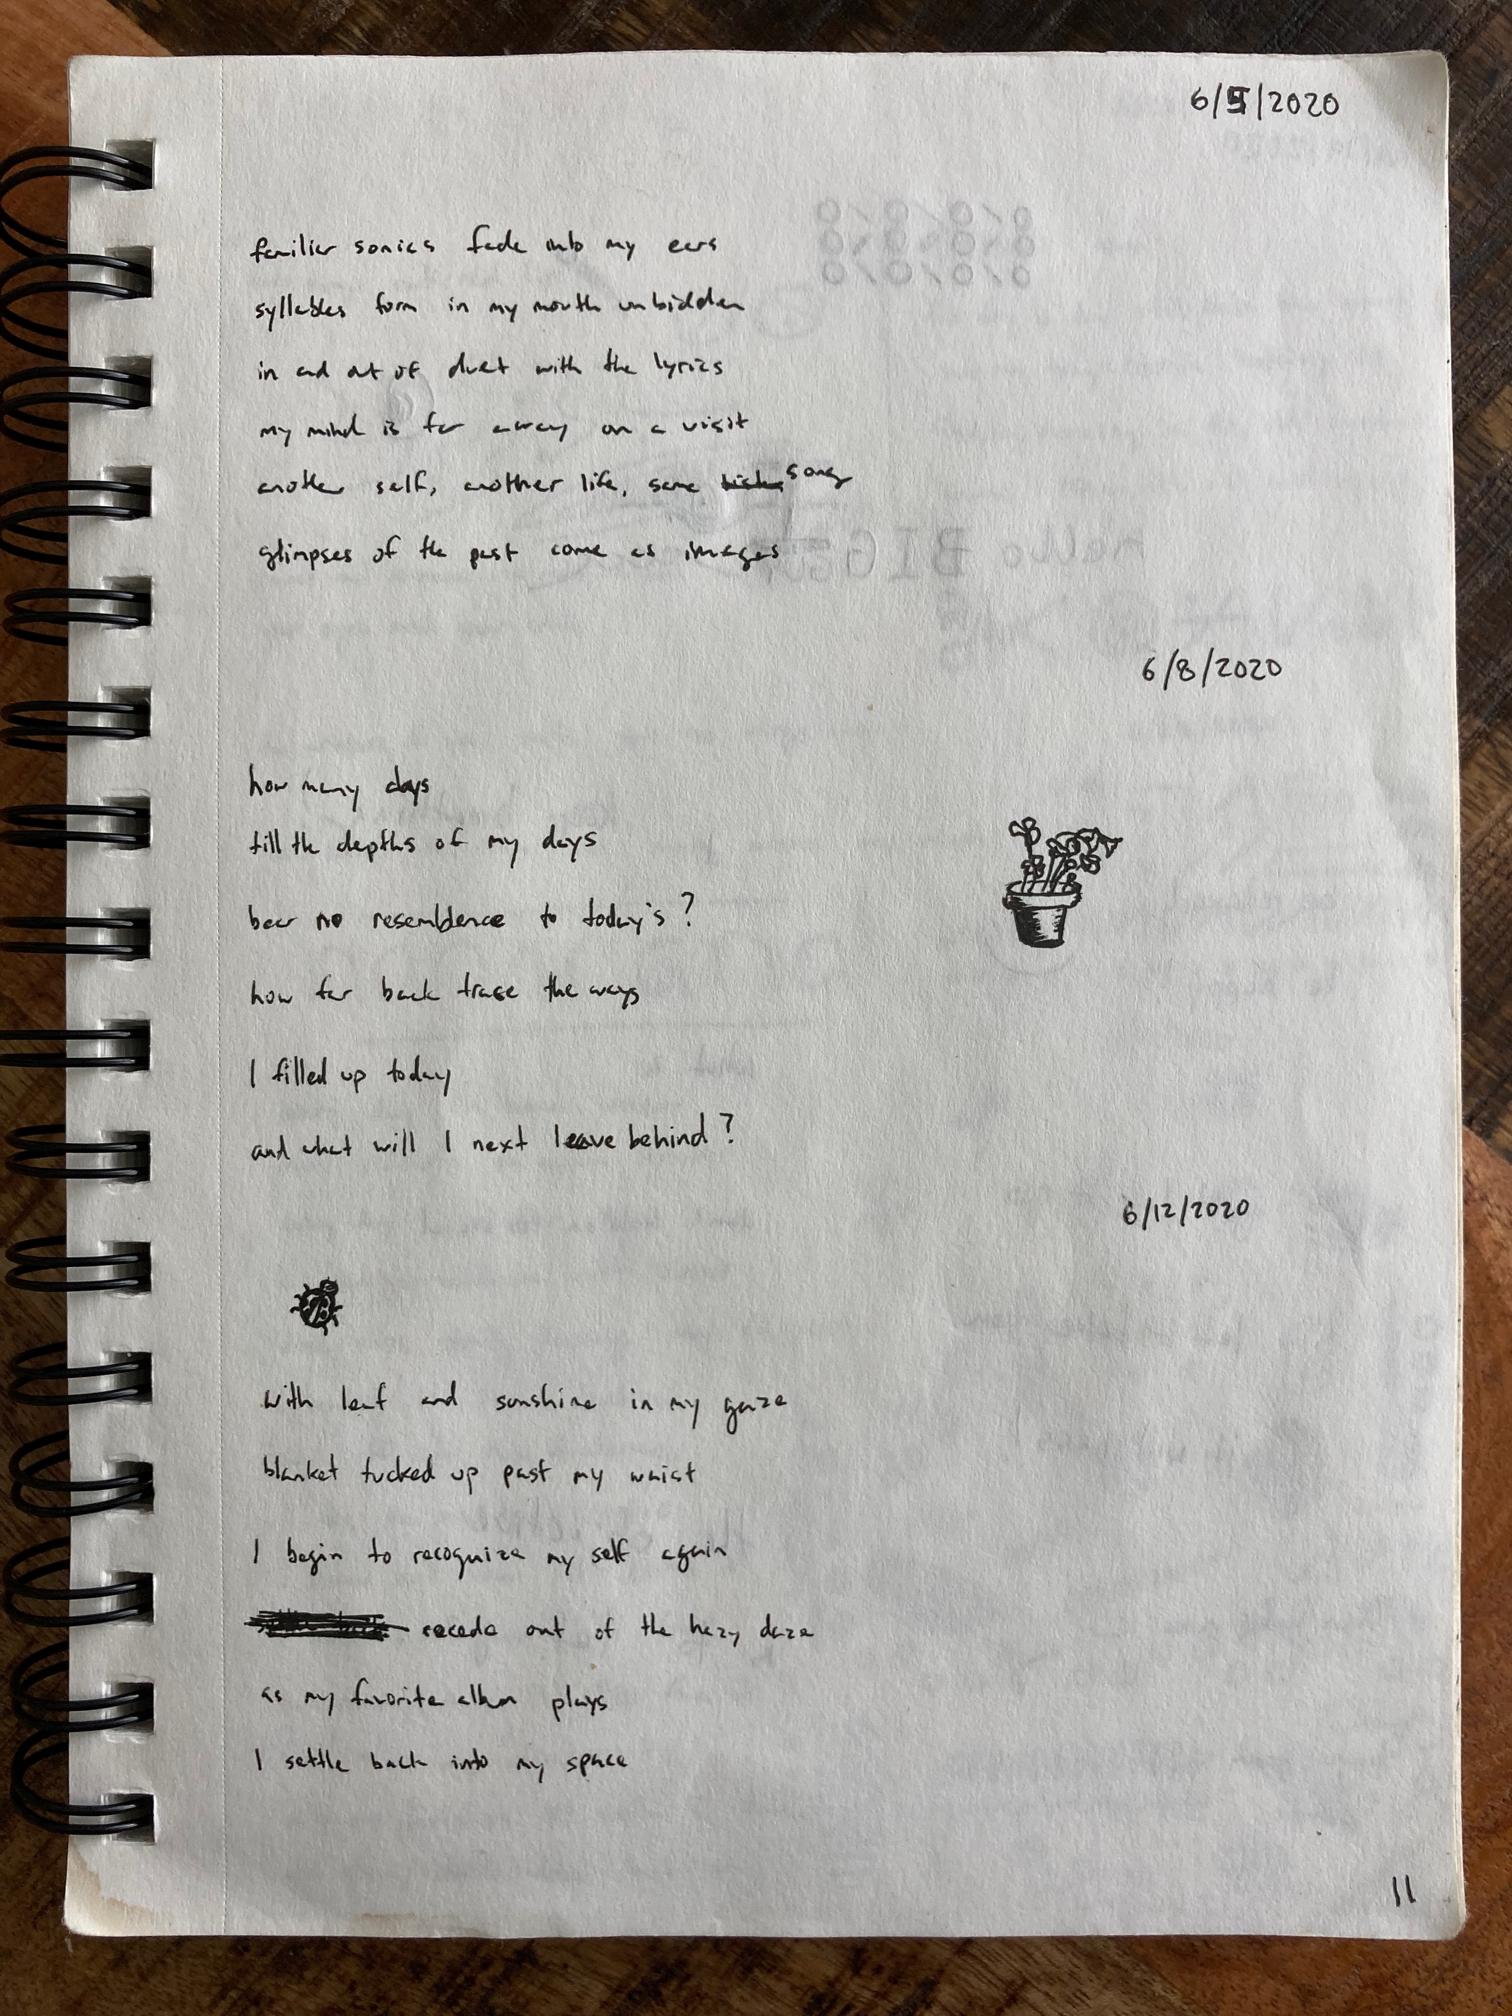 6/5/2020
familiar sonics fade into my ears
syllables form in my mouth unbidden
in and out of duet with the lyrics
my mind is far away on a visit
another self, another life, same song
glimpses of the past come as images
6/8/2020
how many days
till the depths of my days
bear no resemblence to today's?
how far back trase the ways
I filled up today
and what will I next leave behind?
6/12/2020
with leaf and sunshine in my gaze
blanket tucked up past my waist
I begin to recognize my self again
recede out of the hazy daze
as my favorite album plays
I settle back into my space
11